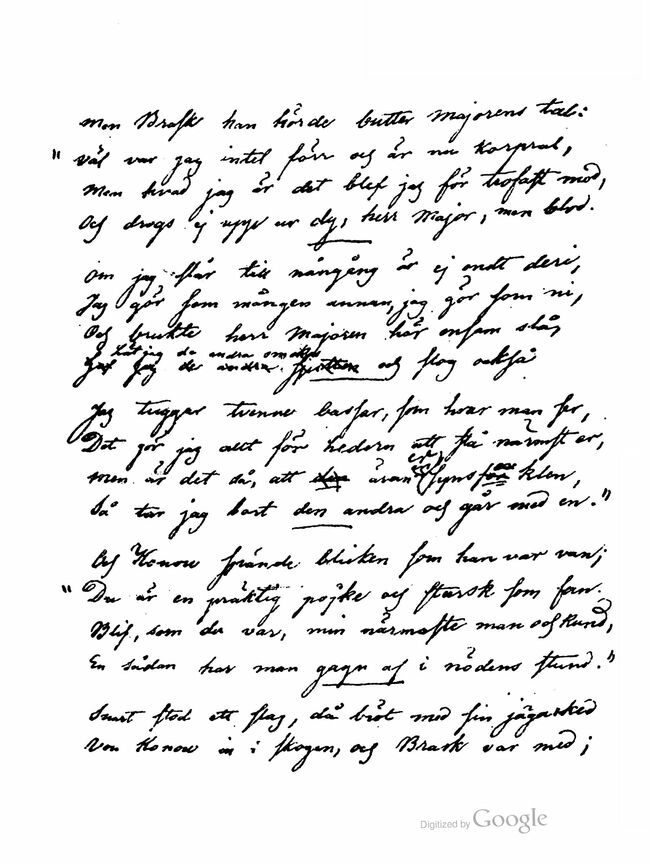 men Brask han hörde butter majorens tal:
"väl var jag intet förr och är nu korpral,
Men hvad jag är det blef jag för trofast mod,
Och drogs ej uppe ur dy, herr Major, men blod.
Om jag står till nångång är ej ondt deri,
Jag gör som mången annan, jag gör som ni,
Och brukte herr Majoren här ensam stå,
låt jag de andra
Jag de andra och slog också
Jag tuggar tvenne bussar, som hvar man ser,
Det gör jag allt för hedern att stå närmst er,
men är det då, att den äran er syns för klen,
Så tar jag bort den andra och går med en."
Och Konow spände blicken som han var van;
"Du är en präktig pojke och stursk som fan.
Blif, som du var, min närmaste man och kund,
En sådan har man gagn af i nödens stund."
Snart stod ett slag, då bröt med sin jägarked
Von Konow in i skogen, och Brask var med;
Digitized by Google